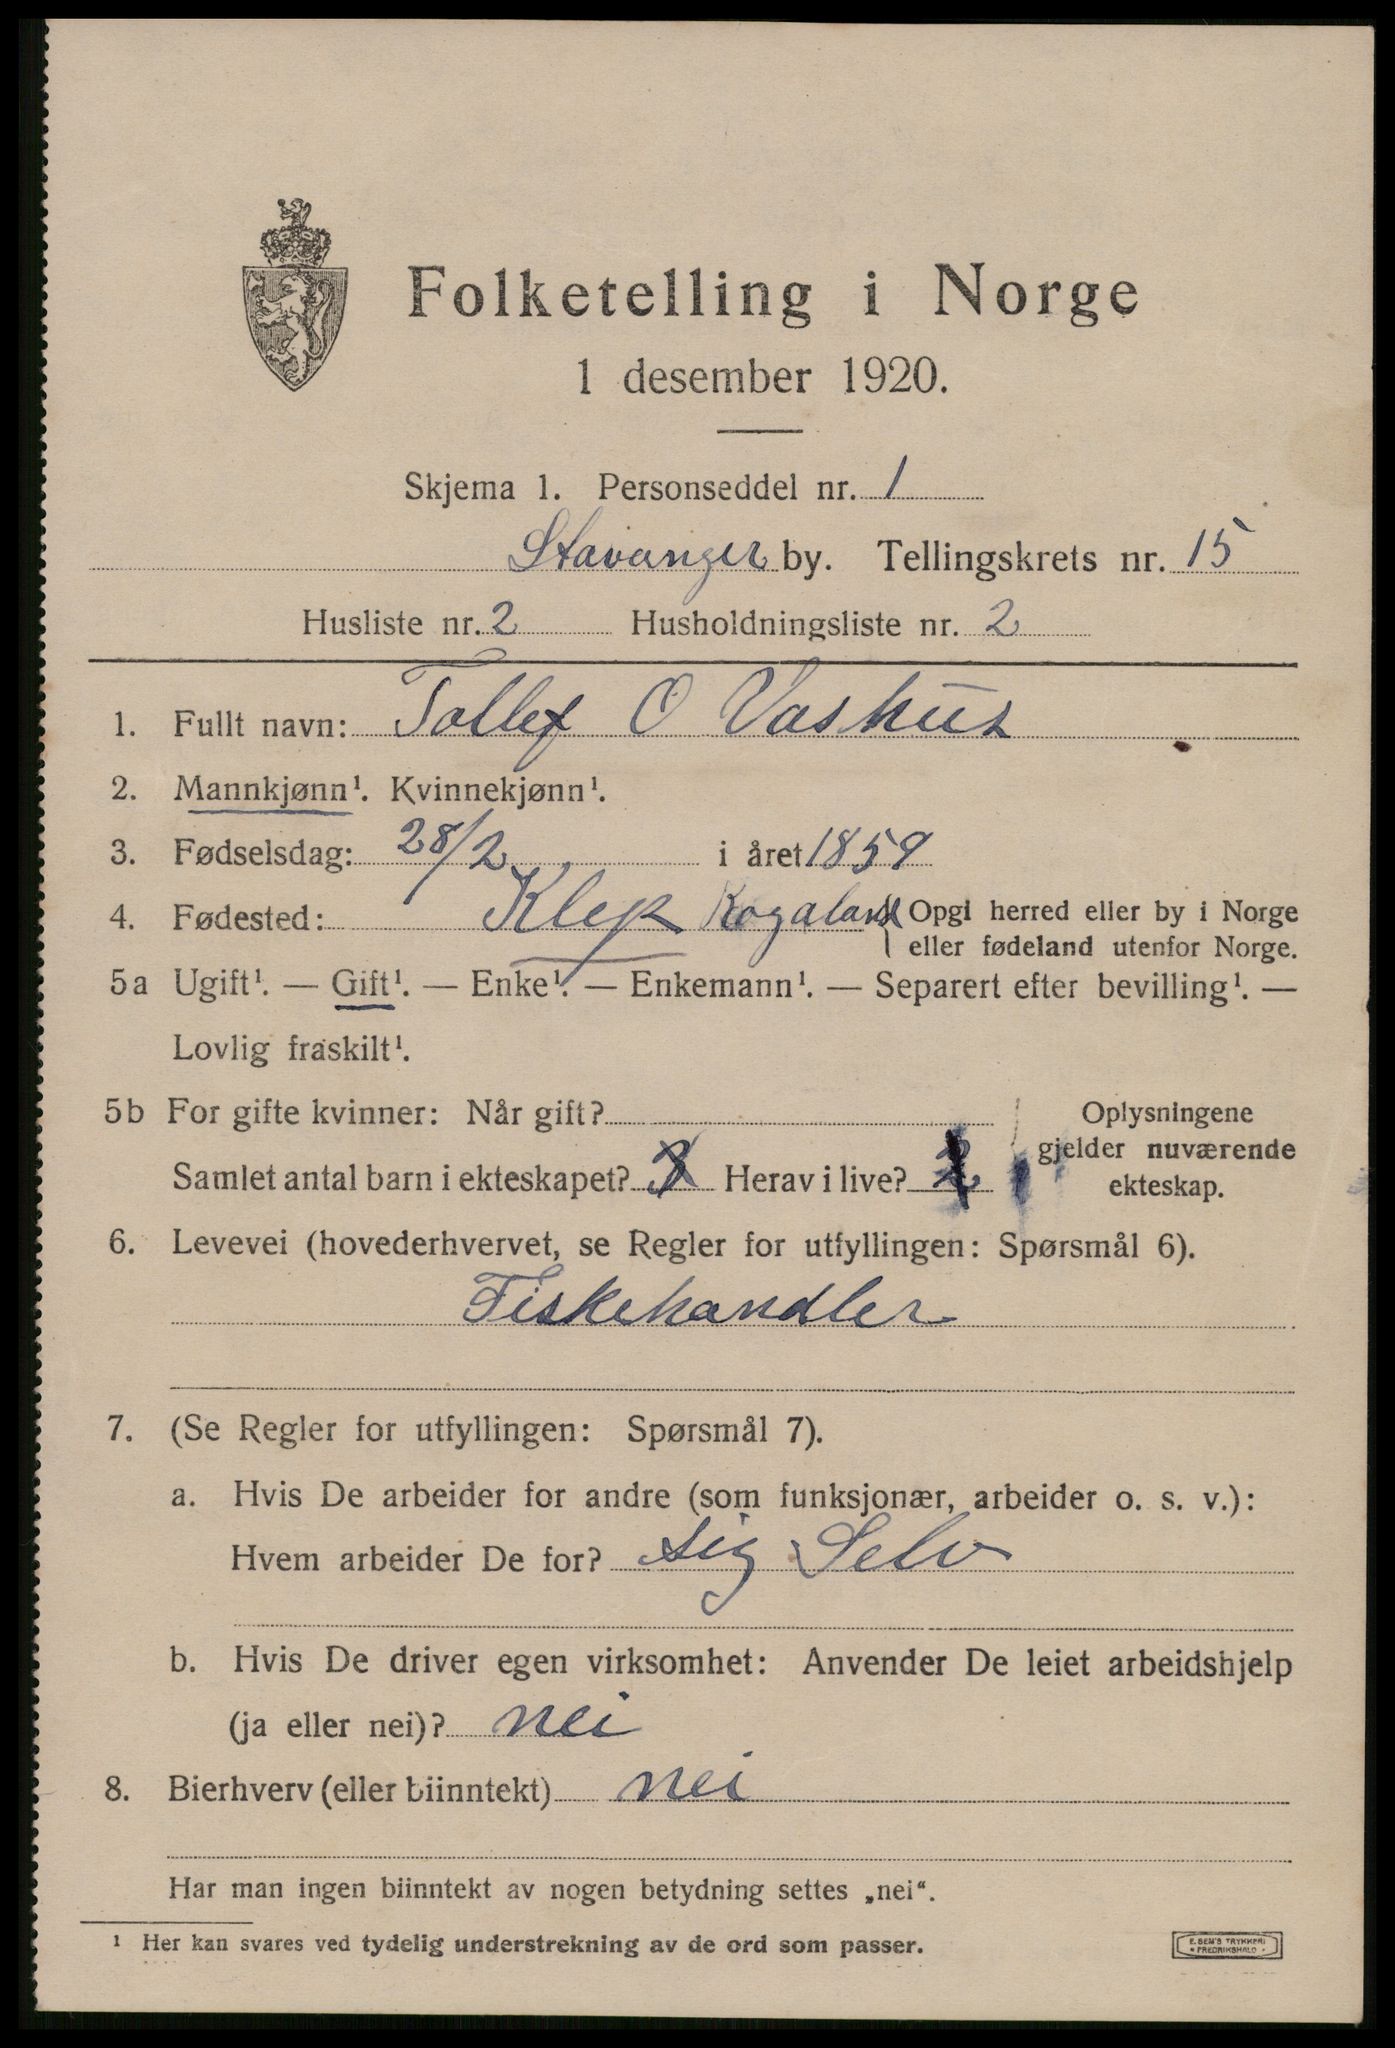 Folketelling i Norge
1 desember 1920.
Skjema 1. Personseddel nr. 1
Stavanger by. Tellingskrets nr. 15
Husliste nr. 2 Husholdningsliste nr. 2
1. Fullt navn: Tollef O Vashus
2. Mannkjønn¹. Kvinnekjønn¹.
3. Fødselsdag: 28/2 i året 1859
4. Fødested: Klep Rogaland Opgi herred eller by i Norge
eller fødeland utenfor Norge.
5a Ugift¹. — Gift¹. — Enke¹. — Enkemann¹. — Separert efter bevilling¹. —
Lovlig fraskilt¹.
5b For gifte kvinner: Når gift? Oplysningene
gjelder nuværende
Samlet antal barn i ekteskapet? 3 Herav i live? 2 ekteskap.
6. Levevei (hovederhvervet, se Regler for utfyllingen: Spørsmål 6).
Fiskehandler
7. (Se Regler for utfyllingen: Spørsmål 7).
a. Hvis De arbeider for andre (som funksjonær, arbeider o. s. v.):
Hvem arbeider De for? sig Selv
b. Hvis De driver egen virksomhet: Anvender De leiet arbeidshjelp
(ja eller nei)? nei
8. Bierhverv (eller biinntekt) nei
Har man ingen biinntekt av nogen betydning settes „nei“.
¹ Her kan svares ved tydelig understrekning av de ord som passer.
E. SEM'S TRYKKERI
• FREDRIKSHALD •